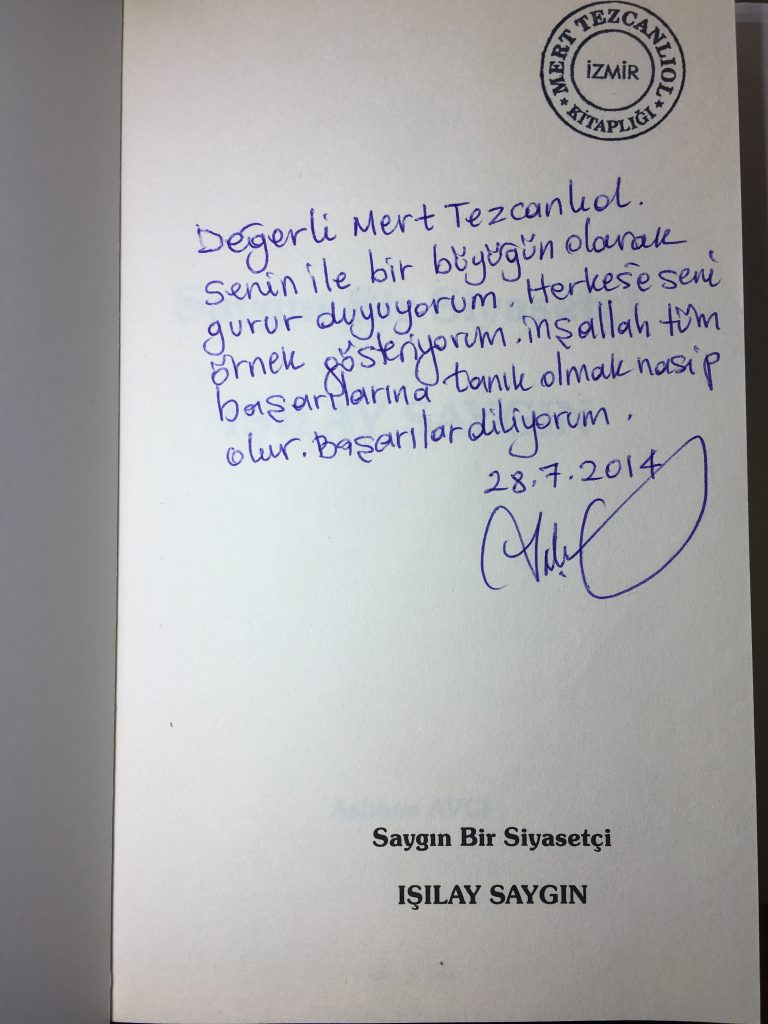 MERT TEZCANLIOL
İZMİR
KİTAPLIĞI
Değerli Mert Tezcanlıol.
senin ile bir büyüğün olarak
gurur duyuyorum. Herkese seni
örnek gösteriyorum. inşallah tüm
başarılarına tanık olmak nasip
olur. Başarılar diliyorum.
28.7.2014
Saygın Bir Siyasetçi
IŞILAY SAYGIN